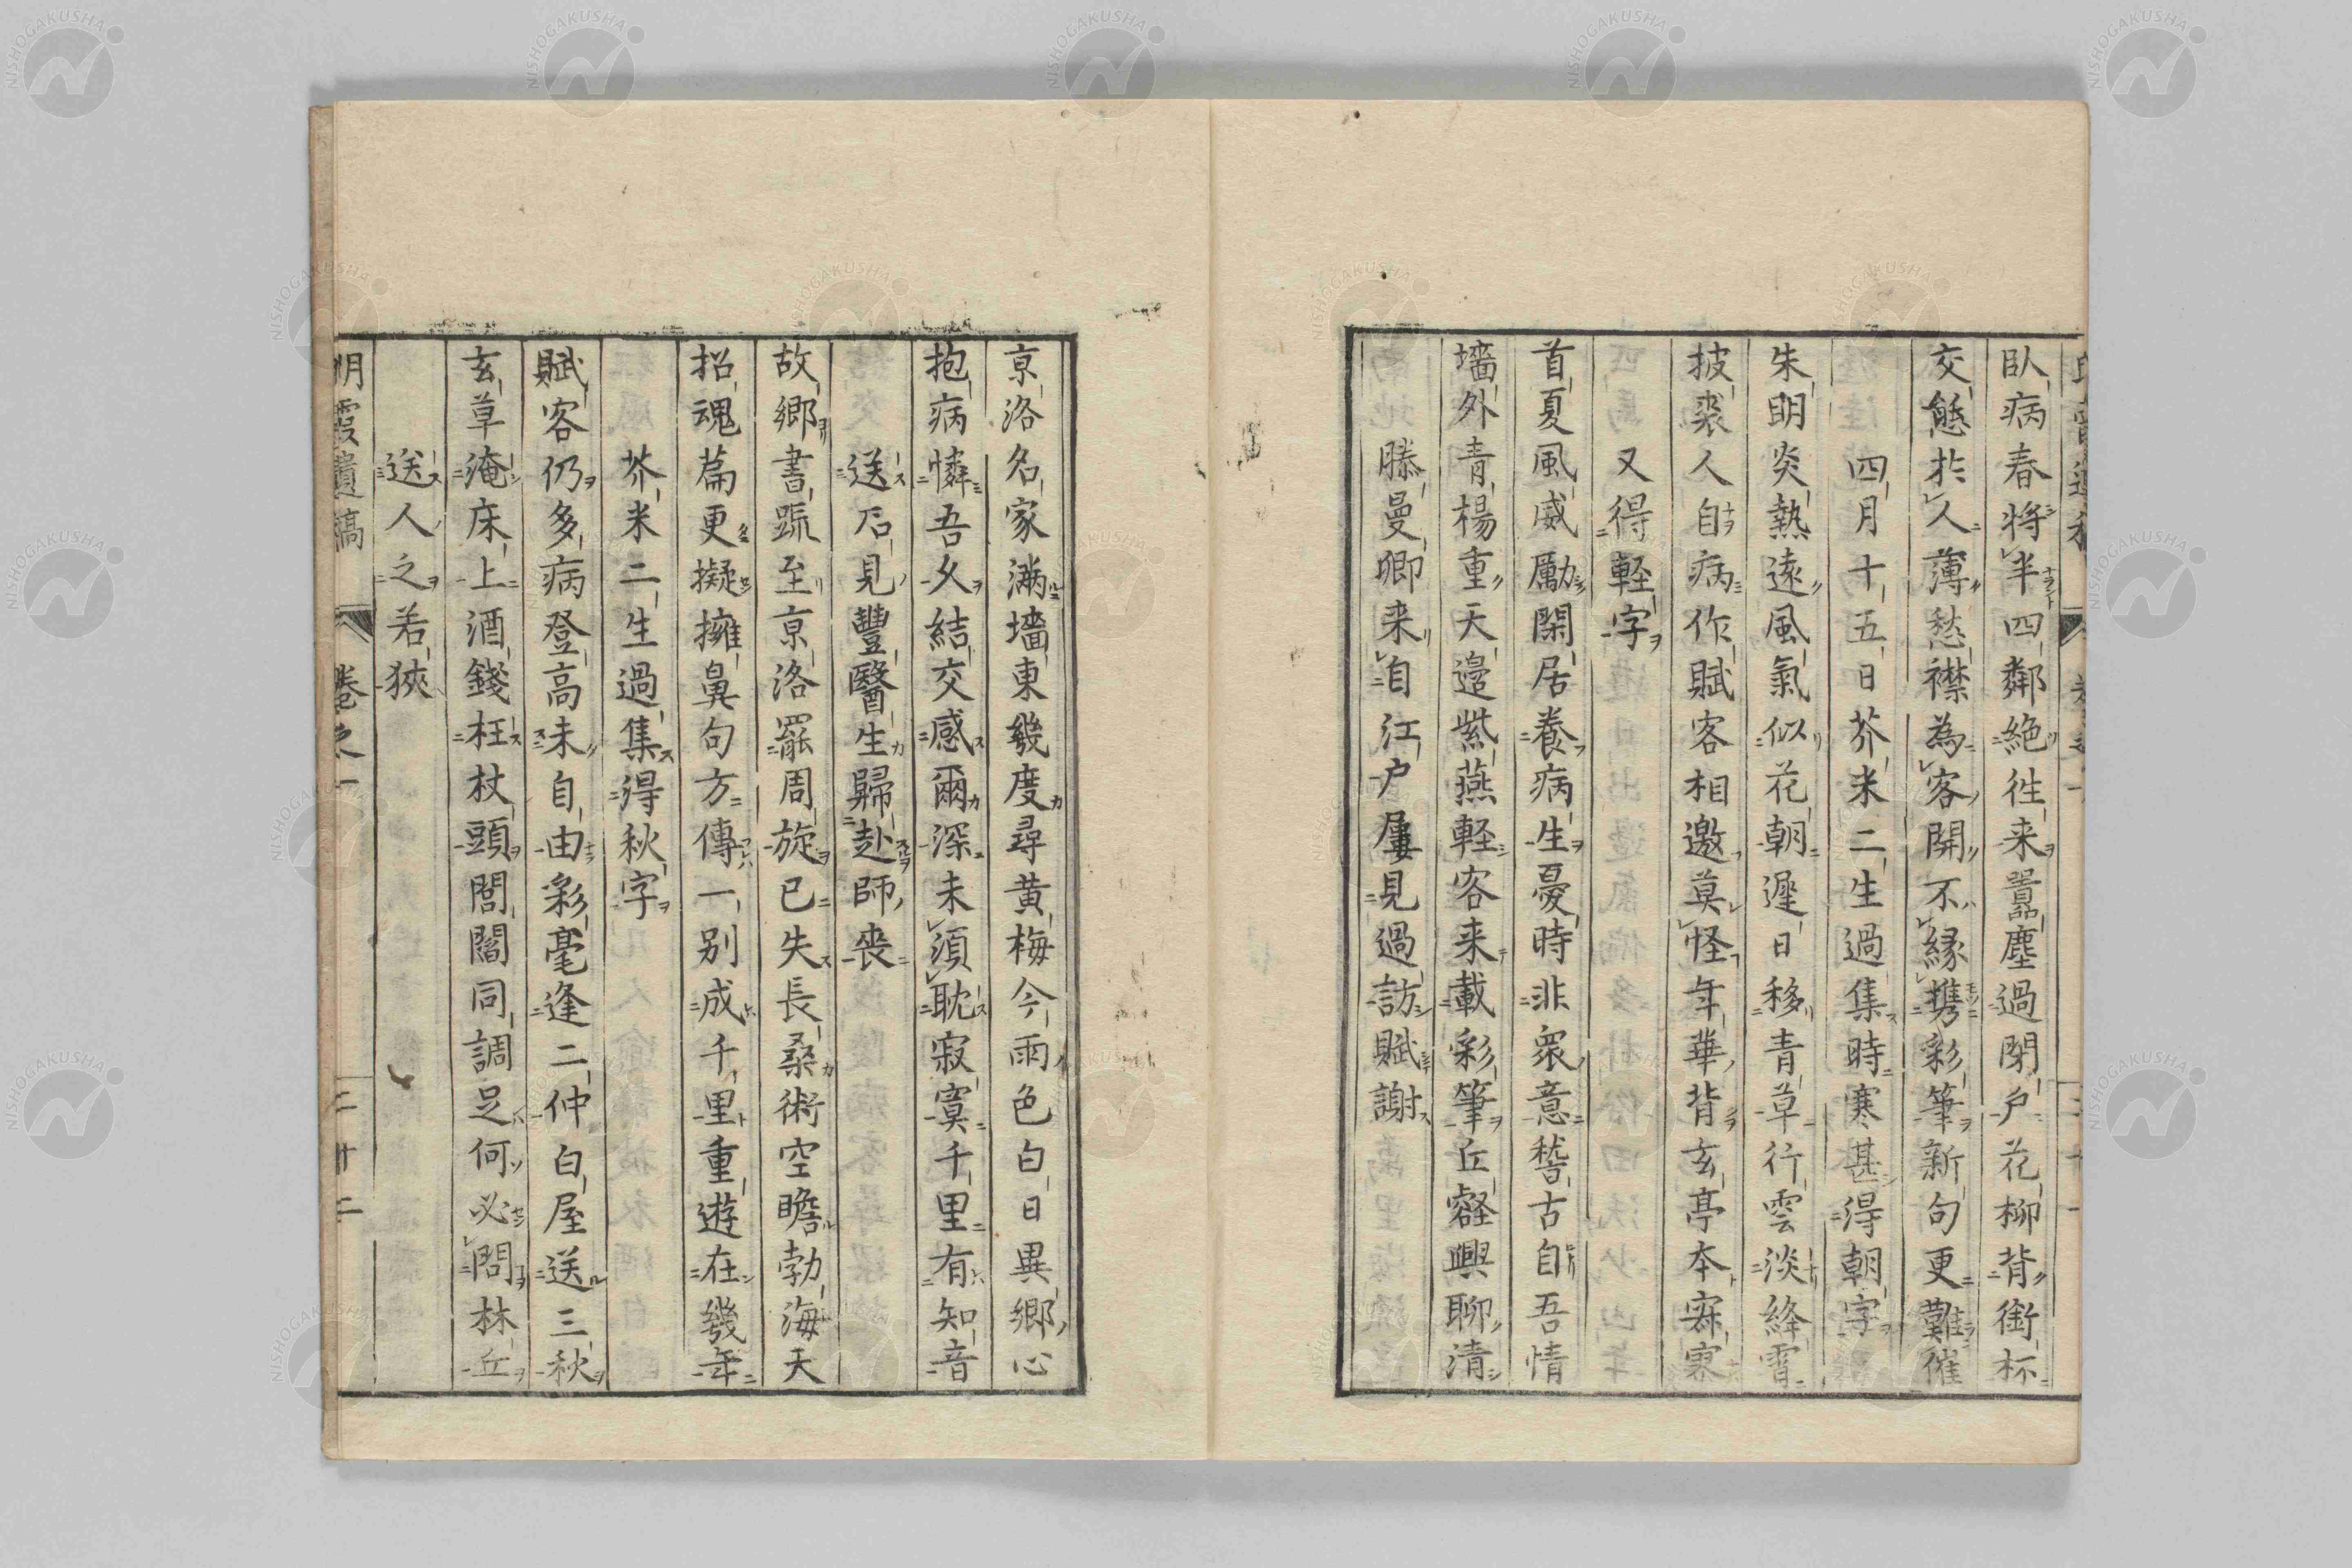 臥病春将半四鄰絶徃来囂塵過閉戸花柳背銜杯
交態於人薄愁襟為客開不縁携彩筆新句更難催
四月十五日芥米二生過集時寒甚得朝字
朱明炎熱遠風氣似花朝遲日移青草行雲淡絳霄
披裘人自病作賦客相邀莫怪年華背玄亭本寂寞
又得軽字
首夏風威勵閑居養病生憂時非衆意嵇古自吾情
墻外青楊重天邉紫燕軽客来載彩筆丘壑興聊清
滕曼卿来自江戸屢見過訪賦謝
京洛名家満墻東幾度尋黄梅今雨色白日異郷心
抱病憐吾久結交感爾深未須耽寂寞千里有知音
送石見豐醫生歸赴師喪
故郷書䟽至京洛罷周旋已失長桑術空瞻勃海天
招魂篇更擬擁鼻句方傳一別成千里重遊在幾年
芥米二生過集得秋字
賦客仍多病登高未自由彩毫逢二仲白屋送三秋
玄草淹床上酒錢枉杖頭閻閻同調足何必問林丘
送人之若狹
明霞遺稿 巻之一 二十二
NISHOGAKUSHA